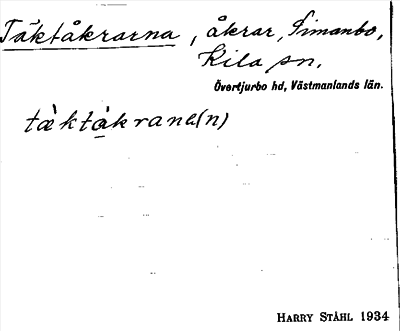 Täktåkrarna, åkrar, Simanbo,
Kila sn.
Övertjurbo hd, Västmanlands län.
tæ̀ktåkrana(n)
HARRY STÅHL 1934